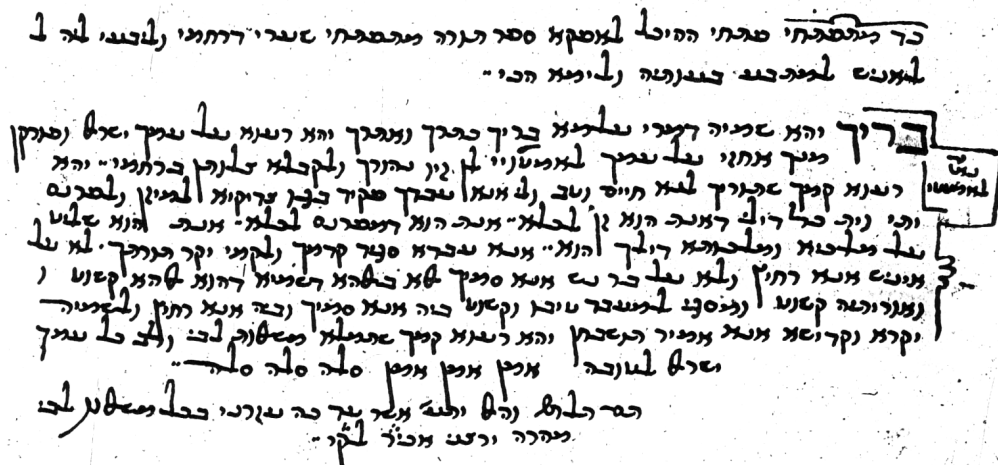 כד מתפתחי פתחי ההיכל לאפקא ספר תורה מתפתחי שערי דרחמי וליבעי ליה ל
לאיניש למתבע בעותיה ולימא הכי
בריך יהא שמיה דמרי עלמא בריך כתרך ואתרך יהא רעוא על עמך ישראל ופורקן
מינך אחזי על עמך לאמטויי לן מן נהורך ולקבלא צלותן ברחמי יהא
לאמטויי
רעוא קמך שתוריך לנא חיים וטב ולי אנא עבדך פקיד בגו צדיקיא למיגן
יתי וית כל די לי דאנת הוא זן לכלא אנת הוא דמפרנס לכלא אנת הוא שליט
על מלכיא ומלכותא דילך הוא אנא עבדא סגיד קדמך ולקמי יקר תורתך לא על
איניש אנא רחיץ ולא על בר נש אנא סמיך אלא באלהא דשמיא דהוא אלהא קשוט ו
ואורייתיה קשוט ומסגי למעבד טיבו וקשוט ביה אנא סמיך וביה אנא רחיץ ולשמיה
יקרא וקדישא אנא אמיר תושבחן יהא רעוא קמך שתמלא משאלות לבי ולב כל עמך
ישראל לטובה אמן אמן אמן סלה סלה סלה
והאל אשר עד כה עזרני ימלא משאלות לבי
מהרה אכי״ר